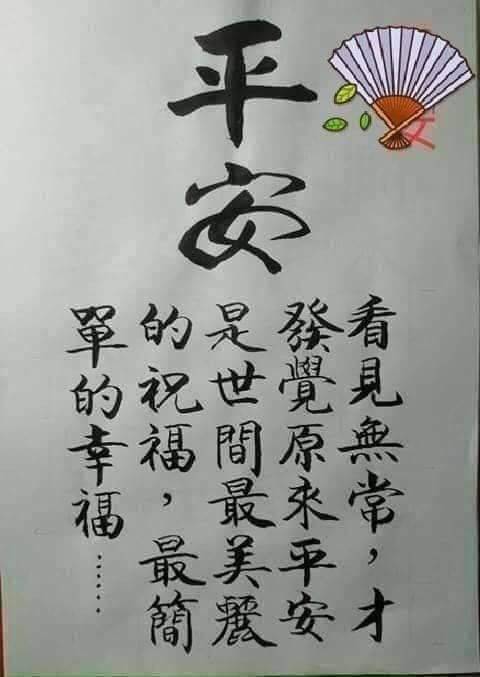 平安
看見無常，才
發覺原來平安
是世間最美麗
的祝福，最簡
單的幸福……